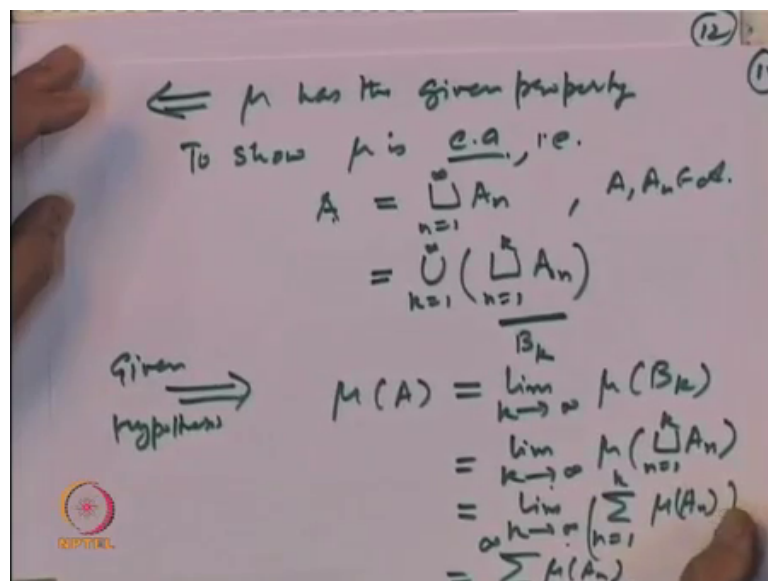 12
1
⇐ μ has the given property
To show μ is c.a, i.e.
A = ⨆_{n=1}^{∞} A_n , A, A_n ∈ 𝒜.
= ⋃_{k=1}^{∞} ( ⨆_{n=1}^{k} A_n )
B_k
Given hypothesis ⟹ μ(A) = lim_{k→∞} μ(B_k)
= lim_{k→∞} μ(⨆_{n=1}^{k} A_n)
= lim_{k→∞} (∑_{n=1}^{k} μ(A_n))
= ∑^{∞} μ(A_n)
NPTEL